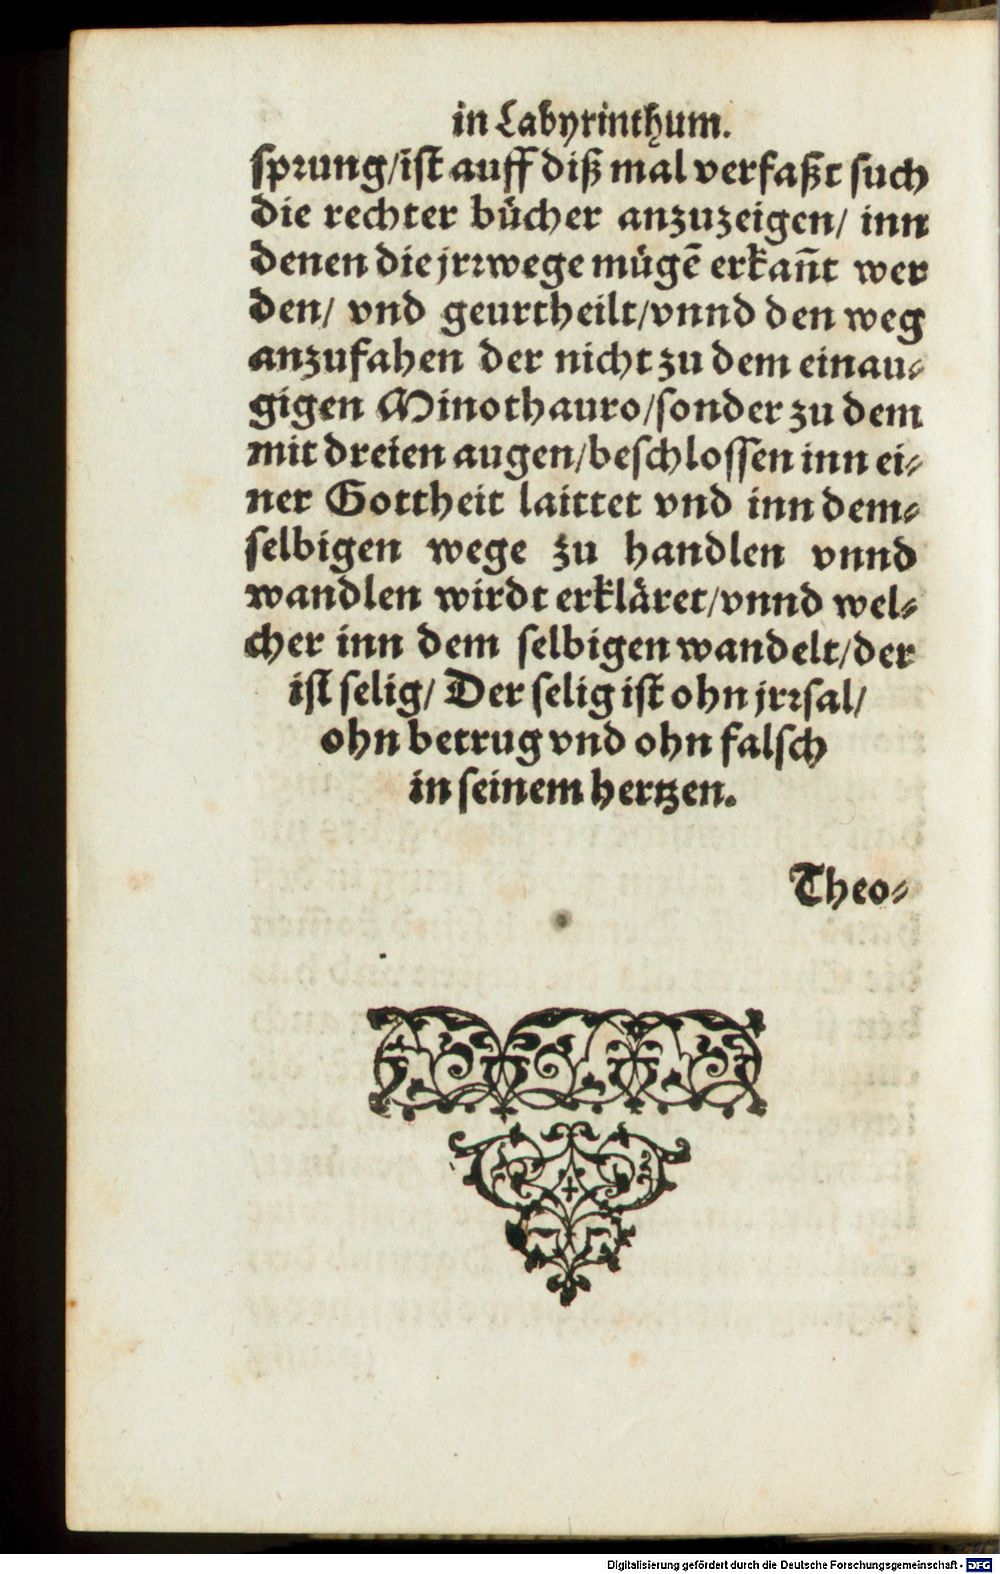 in Labyrinthum.
sprung/ist auff diß mal verfaßt such
die rechter bücher anzuzeigen/ inn
denen die jrrwege mügē erkañt wer
den/ vnd geurtheilt/vnnd den weg
anzufahen der nicht zu dem einau⸗
gigen Minothauro/sonder zu dem
mit dreien augen/beschlossen inn ei⸗
ner Gottheit laittet vnd inn dem⸗
selbigen wege zu handlen vnnd
wandlen wirdt erkläret/vnnd wel⸗
cher inn dem selbigen wandelt/der
ist selig/ Der selig ist ohn jrrsal/
ohn betrug vnd ohn falsch
in seinem hertzen.
Theo⸗
Digitalisierung gefördert durch die Deutsche Forschungsgemeinschaft - DFG